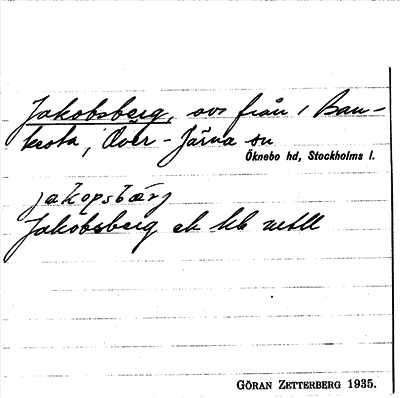 Jakobsberg, avs från 1 Ban-
kesta, Över-Järna sn
Öknebo hd, Stockholms l.
jakopsbärj
Jakobsberg ek kb
GÖRAN ZETTERBERG 1935.